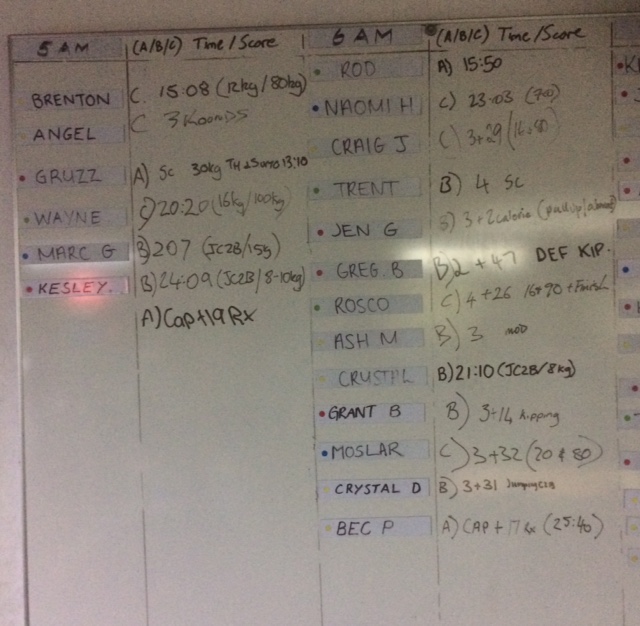 5 AM (A/B/C) Time/Score
BRENTON C. 15:08 (12kg/80kg)
ANGEL C 3 Rounds
GRUZZ A) Sc 30kg TH + Sumo 13:10
WAYNE C) 20:20 (16kg/100kg)
MARC G B) 207 (JC2B/15)
KESLEY. B) 24:09 (JC2B/8-10kg)
A) Cap+19 Rx
6 AM (A/B/C) Time/Score
ROD A) 15:50
NAOMI H C) 23:03 (70)
CRAIG J C) 3+29 (16+80)
TRENT B) 4 Sc
JEN G B) 3+2 calorie (pull up/
GREG. B B) 2 + 47 DEF KIP.
ROSCO C) 4+26 16+90 + Finish
ASH M B) 3 mod
CRUSTI'L B) 21:10 (JC2B/8kg)
GRANT B B) 3+14 kipping
MOSLAR C) 3+32 (20 & 80)
CRYSTAL D B) 3+31
BEC P A) CAP + 17 Rx (25:40)